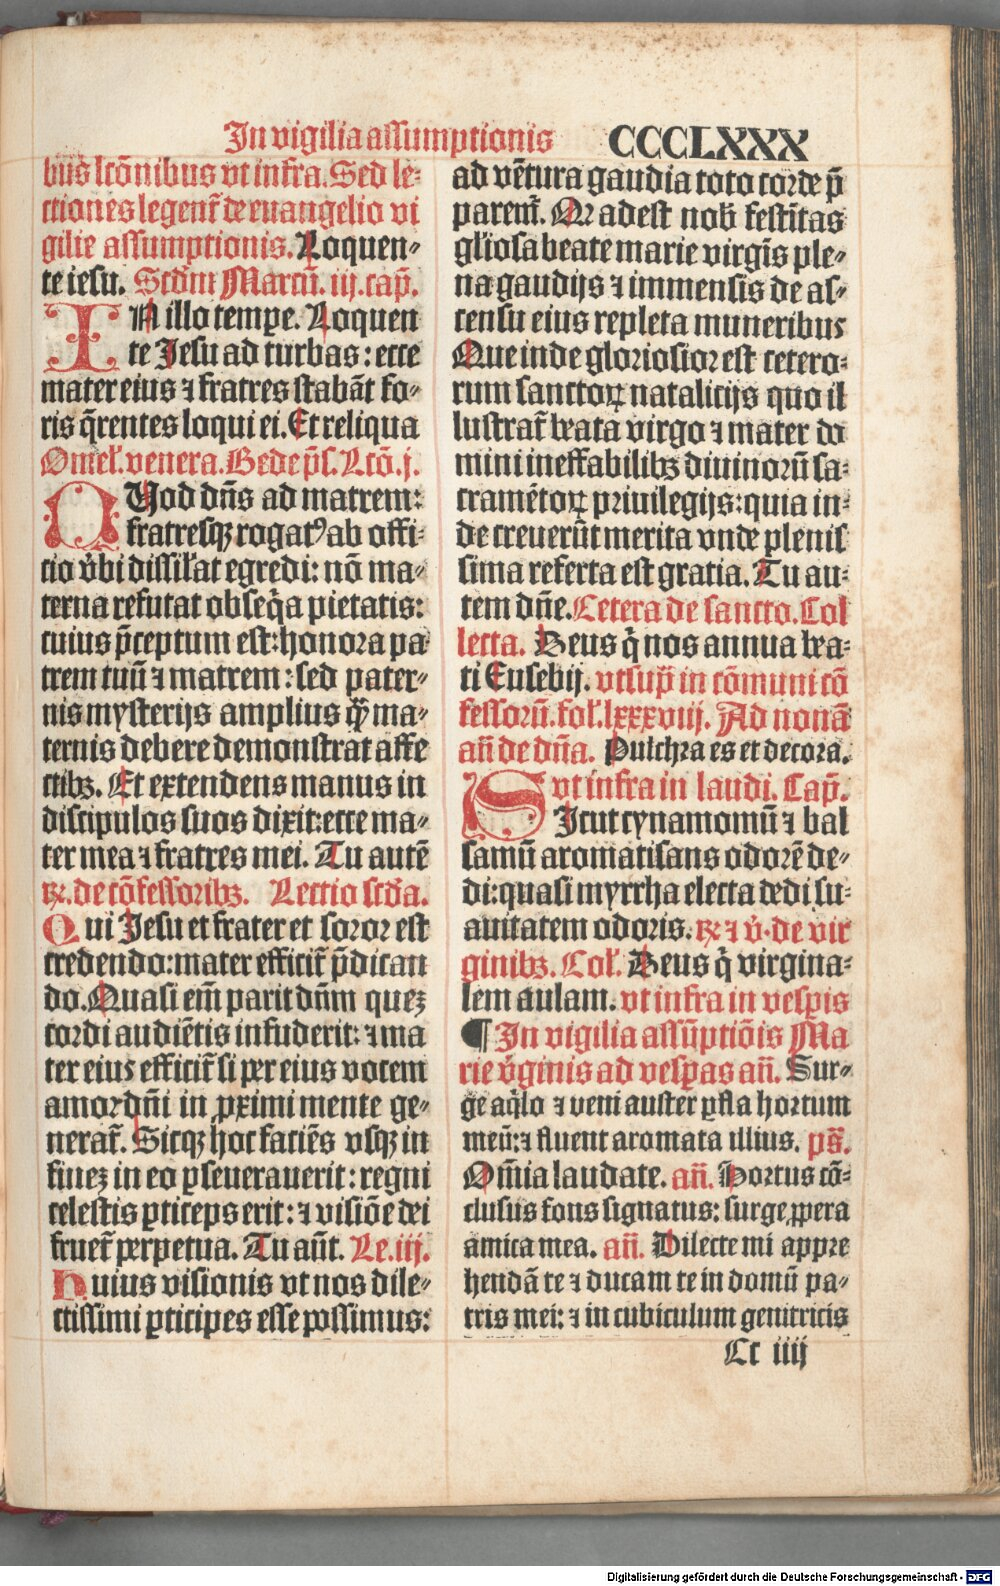 In vigilia assumptionis CCCLXXX
bus lcōnibus vt infra. Sed le⸗
ctiones legent̄ de euangelio vi
gilie assumptionis. Loquen⸗
te iesu. Scd̄m Marcū. iij. cap̄.
IN illo tempꝛe. Loquen
te Jesu ad turbas: ecce
mater eius ⁊ fratres stabāt fo⸗
ris q̄rentes loqui ei. Et reliqua
Omeł. venera. Bede p̄s. Lcō. j.
QUod dn̄s ad matrem:
fratresqꝫ rogatꝰ ab offi⸗
cio v̓bi dissił̓at egredi: nō ma⸗
terna refutat obseq̄a pietatis:
cuius p̄ceptum est: honora pa
trem tuū ⁊ matrem: sed pater⸗
nis mysterijs amplius ꝙ̄ ma⸗
ternis debere demonstrat affe
ctibꝫ. Et extendens manus in
discipulos suos dixit: ecce ma⸗
ter mea ⁊ fratres mei. Tu autē
℞. de cōfessoribꝫ. Lectio scd̄a.
Qui Jesu et frater et soror est
credendo: mater efficit̄ p̄dican
do. Quasi em̄ parit dn̄m queꝫ
cordi audiētis infuderit: ⁊ ma
ter eius efficit̄ si per eius vocem
amor dn̄i in ꝓximi mente ge⸗
nerat̄. Sicqꝫ hoc faciēs vsqꝫ in
fineꝫ in eo ꝑseuerauerit: regni
celestis ꝑticeps erit: ⁊ visiōe dei
fruet̄ perpetua. Tu aūt. Le. iij.
Huius visionis vt nos dile⸗
ctissimi ꝑticipes esse possimus:
ad vētura gaudia toto corde p̄
parem̄. Qr adest nob̄ festītas
gl̓iosa beate marie virgīs ple⸗
na gaudijs ⁊ immensis de as⸗
censu eius repleta muneribus
Que inde gloriosior est cetero⸗
rum sanctoꝝ natalicijs quo il
lustrat̄ beata virgo ⁊ mater do
mini ineffabilibꝫ diuinorū sa⸗
cramētoꝝ priuilegijs: quia in⸗
de creuerūt merita vnde plenis
sima referta est gratia. Tu au⸗
tem dn̄e. Cetera de sancto. Col
lecta. Deus q̄ nos annua bea⸗
ti Eusebij. vt sup̄ in cōmuni cō
fessorū. fol̓. lxxxviij. Ad nonā
an̄ de dn̄a. Pulchra es et decora.
vt infra in laudi. Cap̄.
SIcut cynamomū ⁊ bal
samū aromatisans odorē de⸗
di: quasi myrrha electa dedi su⸗
auitatem odoris. ℞ ⁊ v̓. de vir
ginibꝫ. Col̓. Deus q̄ virgina⸗
lem aulam. vt infra in vesꝑis
¶ In vigilia assūptiōis Ma
rie v̓ginis ad vesꝑas an̄. Sur⸗
ge aq̓lo ⁊ veni auster ꝑfla hortum
meū: ⁊ fluent aromata illius. ps̄.
Om̄ia laudate. an̄. Hortus cō⸗
clusus fons signatus: surge ꝓpera
amica mea. an̄. Dilecte mi appre
hendā te ⁊ ducam te in domū pa⸗
tris mei: ⁊ in cubiculum genitricis
Cc iiij
Digitalisierung gefördert durch die Deutsche Forschungsgemeinschaft - DFG